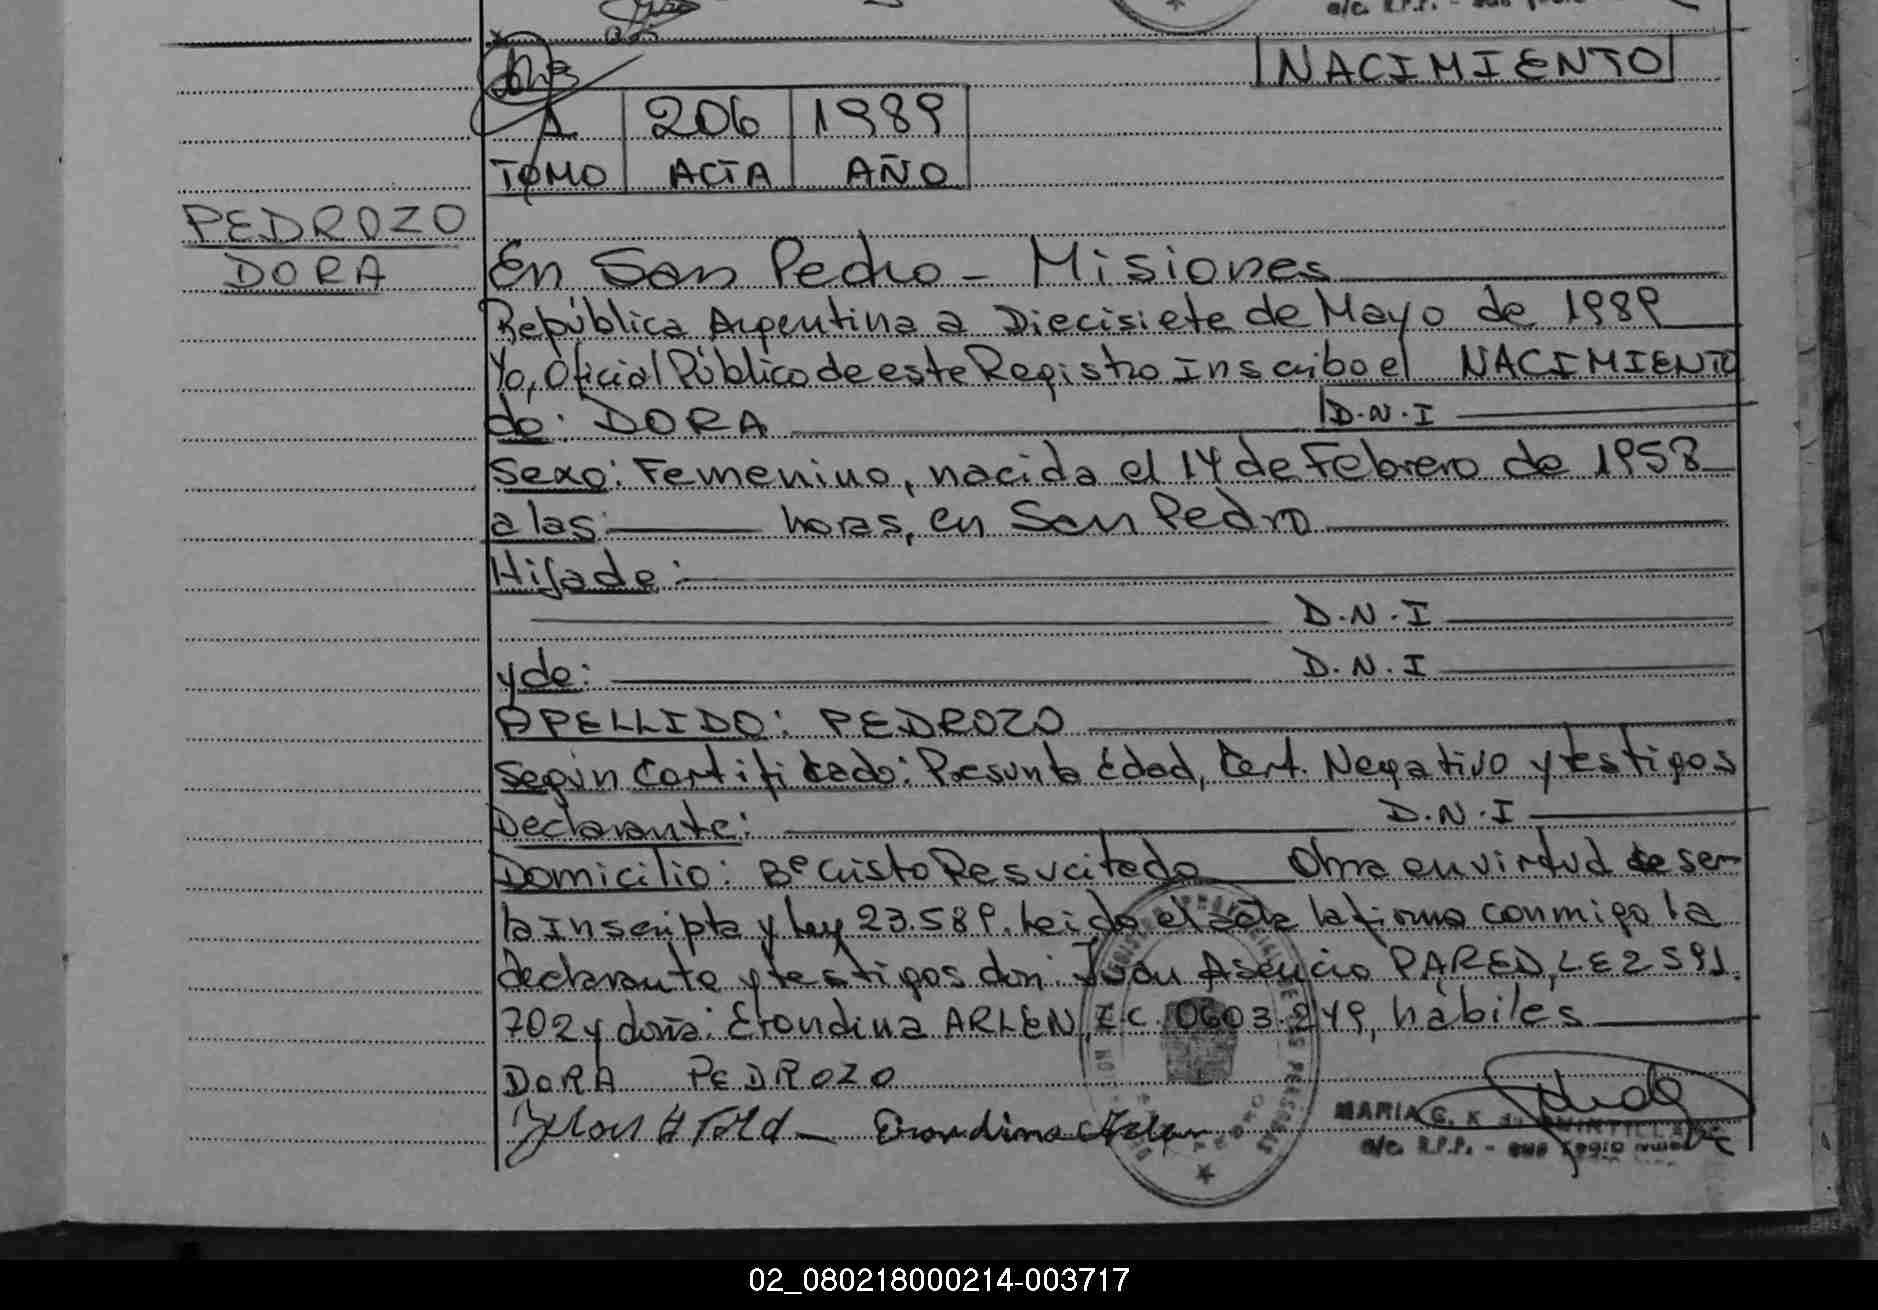 NACIMIENTO
1 206 1989
TOMO ACTA AÑO
PEDROZO
DORA
En San Pedro - Misiones
República Argentina a Diecisiete de Mayo de 1989
Yo, Oficial Público de este Registro Inscribo el NACIMIENTO
de: DORA D.N.I
Sexo: Femenino, nacida el 14 de Febrero de 1958
a las: horas, en San Pedro
Hija de:
D.N.I
y de: D.N.I
APELLIDO: PEDROZO
Según Certificado: Presunta Edad, Cert. Negativo y testigos
Declarante: D.N.I
Domicilio: Bº Cristo Resucitado Obra en virtud de ser
la Inscripta y Ley 23.589. Leida el acta la firma conmigo la
declarante y testigos don: Juan Asencio PARED, LE 2591.
702 y doña: Erondina ARLEN, I.C. 0603.249, hábiles
DORA PEDROZO
Erondina
MARIA G. K. de
a/c. R.P.P. -
02_080218000214-003717